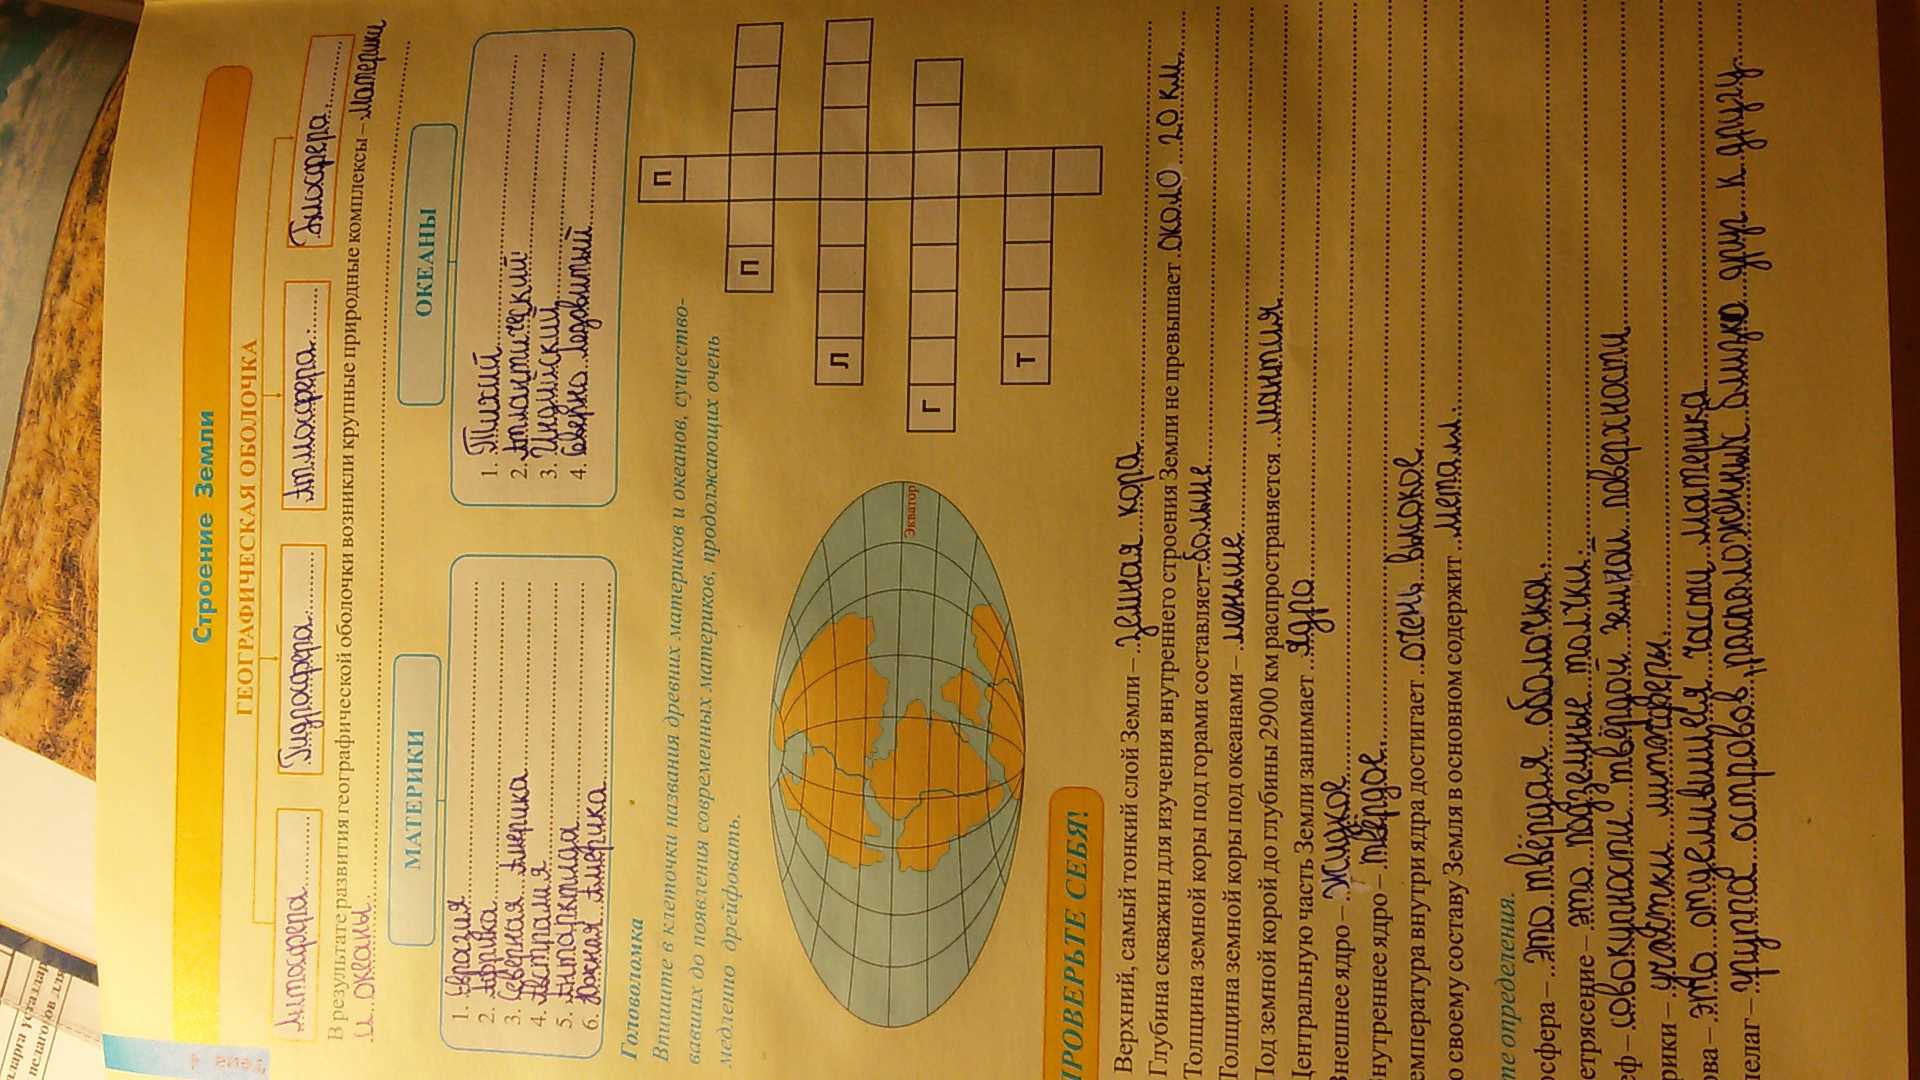 Тема 4
Строение Земли
ГЕОГРАФИЧЕСКАЯ ОБОЛОЧКА
Литосфера
Гидросфера
Атмосфера
Биосфера
В результате развития географической оболочки возникли крупные природные комплексы – материки
и океаны
МАТЕРИКИ
1. Евразия
2. Африка
3. Северная Америка
4. Австралия
5. Антарктида
6. Южная Америка
ОКЕАНЫ
1. Тихий
2. Атлантический
3. Индийский
4. Северно Ледовитый
Головоломка
Впишите в клеточки названия древних материков и океанов, существо-
вавших до появления современных материков, продолжающих очень
медленно дрейфовать.
Экватор
П
П
Л
Г
Т
ПРОВЕРЬТЕ СЕБЯ!
Верхний, самый тонкий слой Земли – земная кора
Глубина скважин для изучения внутреннего строения Земли не превышает около 20 км.
Толщина земной коры под горами составляет больше
Толщина земной коры под океанами – меньше
Под земной корой до глубины 2900 км распространяется мантия
Центральную часть Земли занимает Ядро
Внешнее ядро – жидкое
нутреннее ядро – твёрдое
емпература внутри ядра достигает очень высокое
о своему составу Земля в основном содержит металл.
те определения.
осфера – это твёрдая оболочка.
етрясение – это подземные толчки.
еф – совокупности твёрдой земной поверхности
рики – участки литосферы.
ова – это отделившиеся части материка
пелаг – группа островов, расположенных близко друг к другу